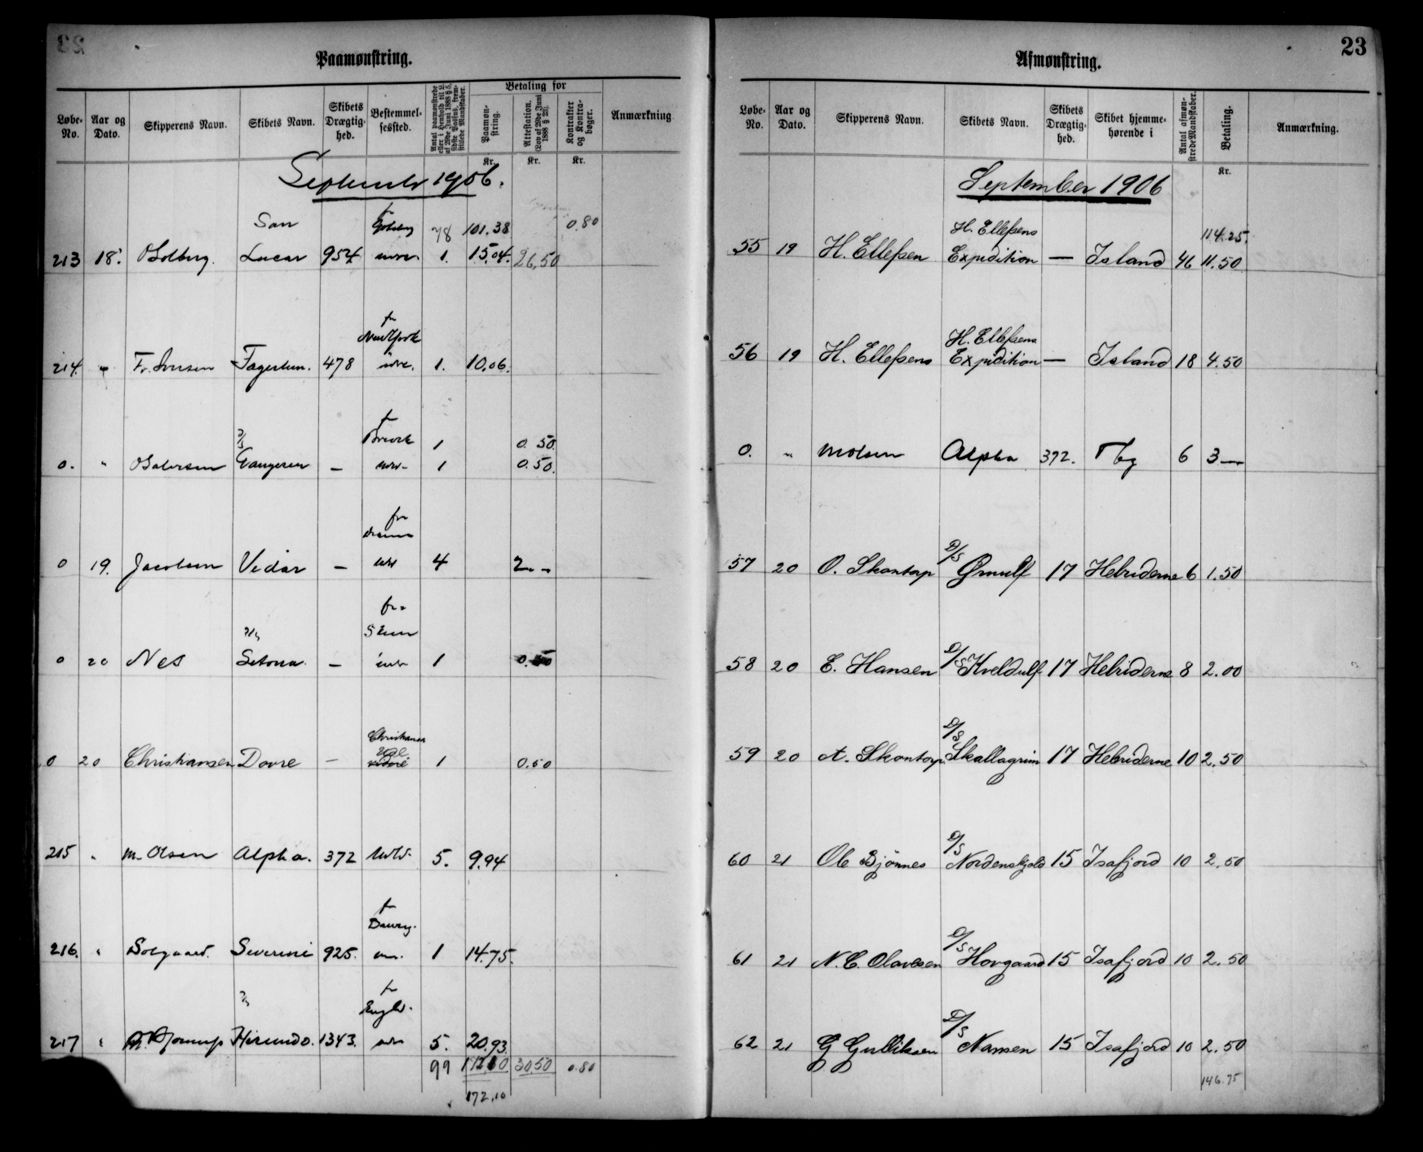 Paamønstring.
Løbe-No. Aar og Dato. Skipperens Navn. Skibets Navn. Skibets Drægtighed. Bestemmelsessted. Betaling for Paamønstring. Attestation. (Lov af 20de Juni 1888 § 28) Kontrakter og Kontrabøger. Anmærkning
Kr. Kr. Kr.
September 1906.
78 101.38 0.80
213 18. O Solberg. San Lucar 954 1. 15.04. 26.50
214. " Fr. Iversen 478 1. 10.06.
1 0.50
0. " Gangeren — 1 0.50.
0 19. Jacobsen Vidar — 4 2 —
0 20 Nes — 1 0.50
0 20 Christiansen Dovre — Christiania 1 0.50
215 " M. Olsen Alpha. 372 5. 9.94
216. " Solgaard. Severine 925. 1 14.75.
217 " Hirundo. 1343. 5. 20.93
99 30.50 0.80
172.10
23
Afmønstring.
Løbe-No. Aar og Dato. Skipperens Navn. Skibets Navn. Skibets Drægtighed. Skibet hjemmehørende i Antal afmønstrede Mandskaber. Betaling. Anmærkning.
Kr.
September 1906
114.25.
55 19 H. Ellefsen H. Ellefsens Expedition — Island 46 11.50
56 19 H. Ellefsens H. Ellefsens Expedition — Island 18 4.50
0. " M Olsen Alpha 372. Tbg 6 3 —
57 20 O. Skontorp D/S Ørnulf 17 Hebriderne 6 1.50
58 20 E. Hansen D/S Kveldulf 17 Hebriderne 8 2.00
59 20 A. Skontorp D/S Skallagrim 17 Hebriderne 10 2.50
60 21 Ole Bjønnes D/S Nordenskjold 15 Isafjord 10 2.50
61 21 N. C. Olavesen D/S Hovgaard 15 Isafjord 10 2.50
62 21 G Gulliksen D/S Nansen 15 Isafjord 10 2.50
146.75